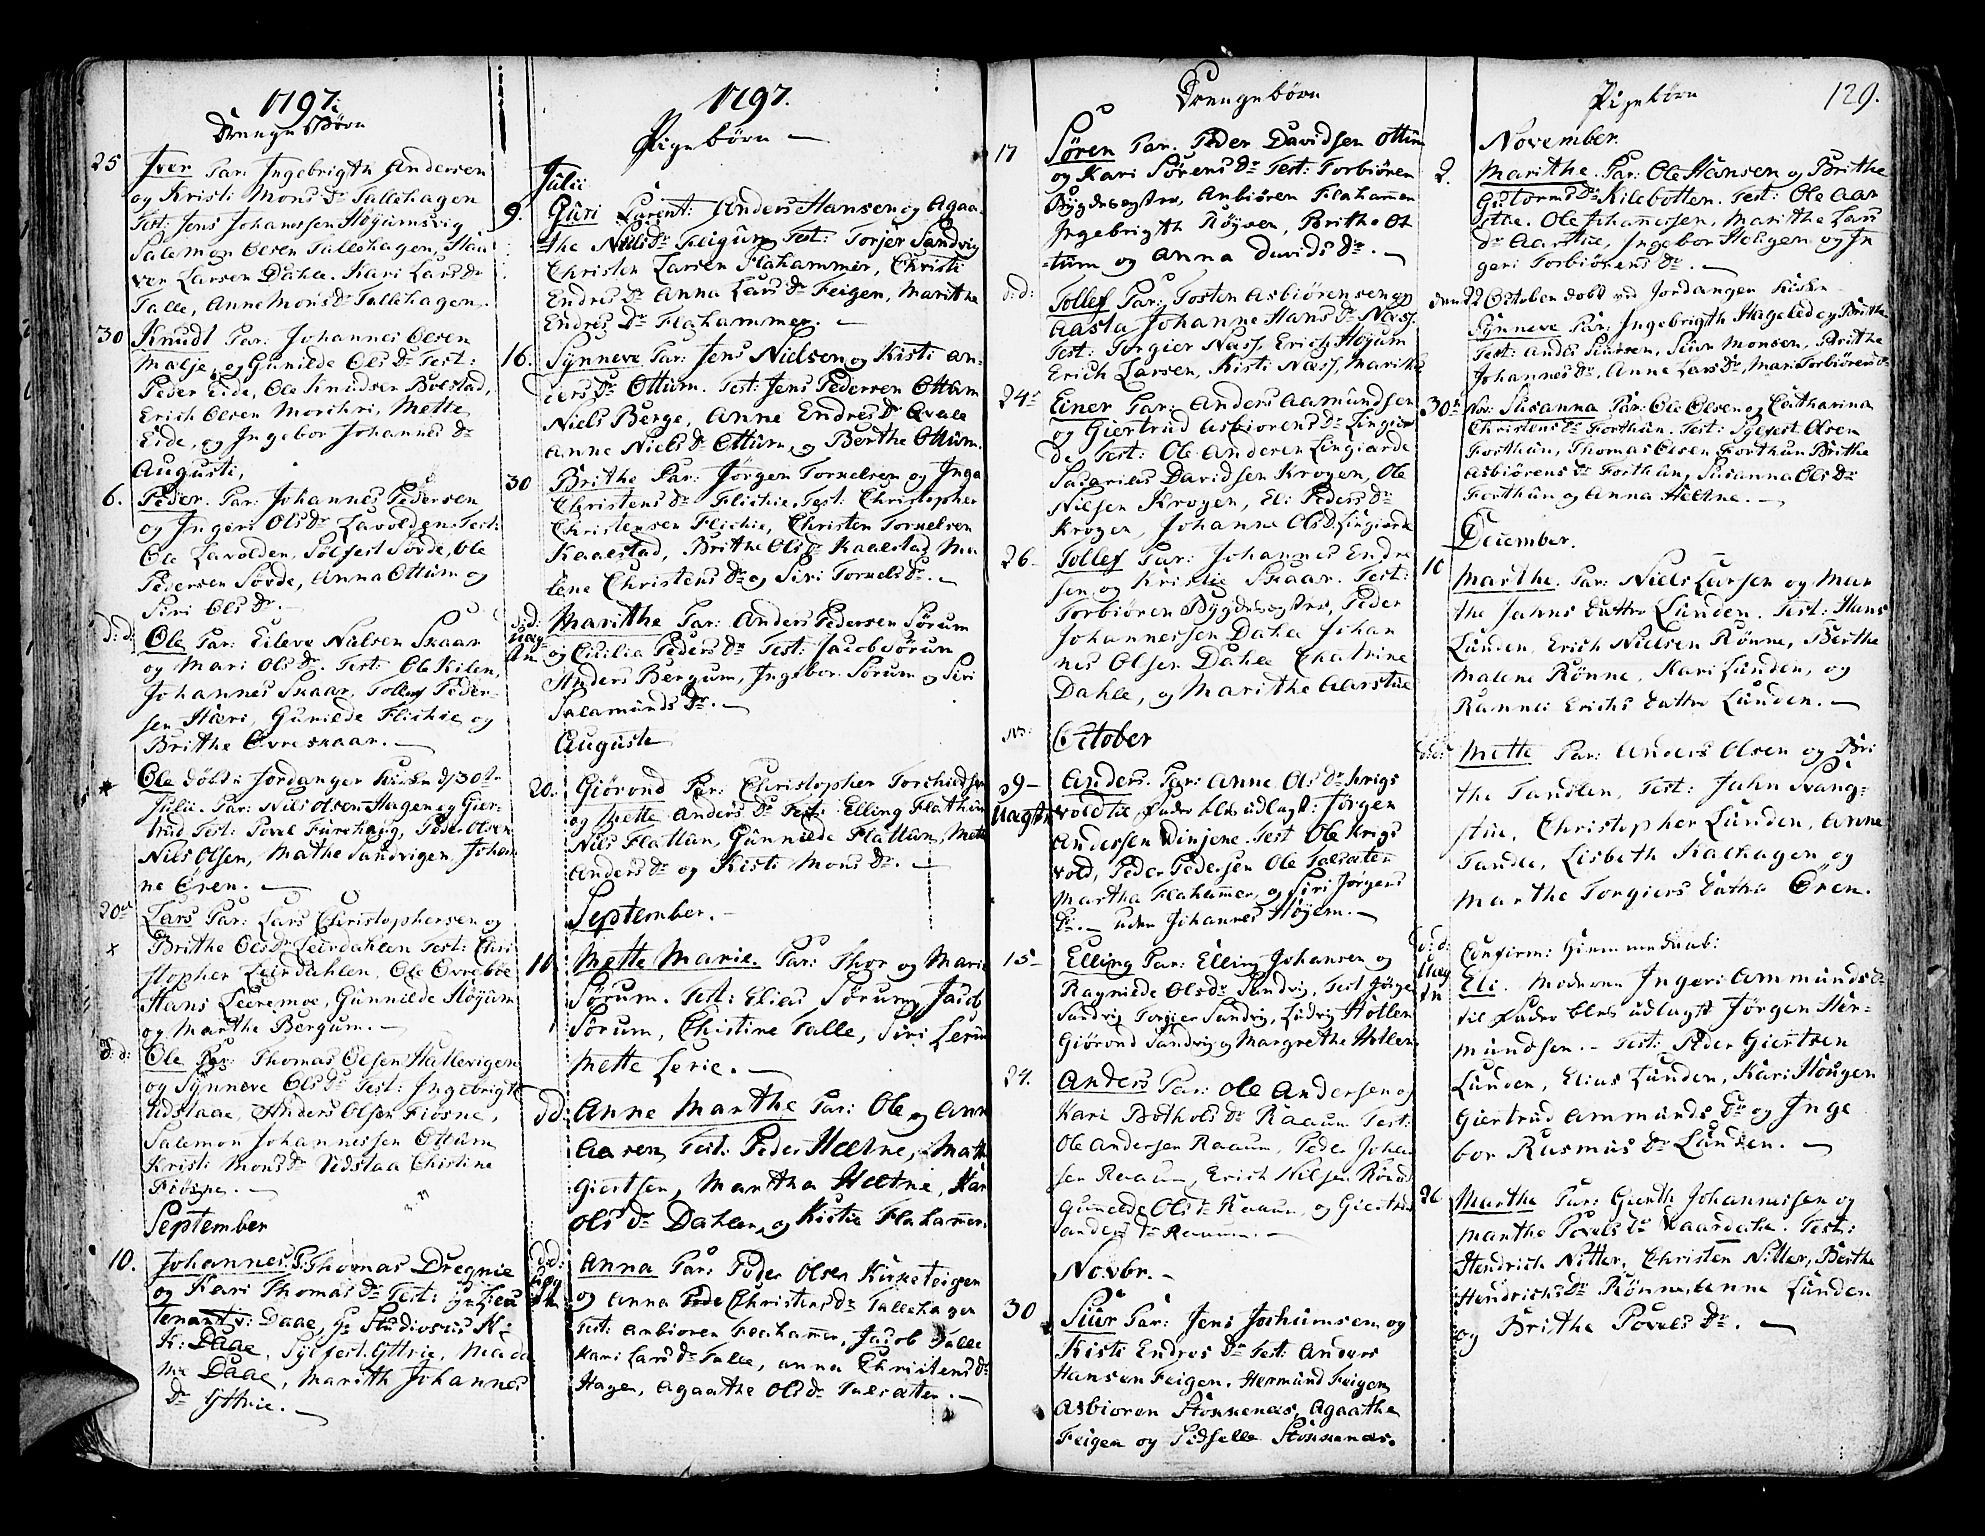 1797.
Drenge Børn
25 Iver Par: Ingebrigth Andersen
og Kristi Mons Dr Tallehagen
Test: Jens Johanssen Høyumsvig
Salemon Olsen Tallehagen,
ven Larsen Dahle. Kari Lars Dr
Talle, Anne Mons Dr Tallehagen.
30 Knudt Par: Johannes Olsen
Molje, og Gunilde Ols Dr Test:
Peder Eide, Ole Knudsen Bolstad,
Erich Olsen Morihri, Mette
Eide, og Ingebor Johannes Dr
Augusti,
6. Peder. Par: Johannes Pedersen
og Ingeri Ols Dr Lavolden. Test:
Ole Lavolden, Sølfest Sovde, Ole
Pedersen Sovde, Anna Ottum og
Siri Ols Dr. —
d:d: Ole Par: Eileve Nielsen Skaar
og Mari Ols Dr. Test: Ole Kilen,
Johannes Skaar, Tollef Peder-
sen Hæri, Gunilde Flichie og
Brithe Øvreskaar. —
Ole døbt i Jordanger Kirken d/30te
Julii. Par: Nils Olsen Hagen og Gier-
trud Test: Povel Furehaug, Peder Olsen
Nils Olsen, Mathe Sandvigen, Johan
ne Øren. —
20de Lars Par: Lars Christophersen og
x Brithe Ols Dr Leirdahlen Test: Chri
stopher Leirdahlen, Ole Øvrebøe
Hans Leeremoe, Gunnilde Høyum
og Marthe Bergum. —
d:d: Ole Par: Thomas Olsen Hatlevigen
og Synneve Ols Dr Test: Ingebrigt
Vidslaae, Anders Olsen Fiøsne,
Salemon Johannessen Ottum
Kristi Mons Dr Vidslaa Christine
Fiøsne. —
September
10. Johannes. P: Thomas Dregnie
og Kari Thomas Dr Test: Hr Lieu
tenant v: Daae, Hr Studiosus N:
K: Daae, Sylfest Yttrie, Mada
me Daae, Marith Johannes
Dr Yttrie. —
1797.
Pigebørn —
Julii
9. Guri Parent: Anders Hansen og Agaa-
the Niels Dr Feigum Test: Torjer Sandvig
Christen Larsen Flahammer, Christi
Endres Dr Anna Lars Dr Feigen, Marithe
Endres Dr Flahammer. —
16. Synneve Par: Jens Nielsen og Kisti An-
ders Dr Ottum. Test: Jens Pedersen Ottum
Niels Berge, Anne Endres Dr Qvale
Anne Niels Dr Ottum, og Berthe Ottum.
30 Brithe Par: Jørgen Tornelsen og Inga
Christens Dr Flichie, Test: Christopher
Christensen Flichie, Christen Tornelsen
Kaalstad, Brithe Ols Dr Kaalstad Ma
lene Christens Dr og Siri Tornels Dr. —
d:d: Marithe Par: Anders Pedersen Sørum
og Cicilia Peders Dr Test: Jacob Sørum
Anders Bergum, Ingebor Sørum og Siri
Salamunds Dr. —
Auguste
20. Giørond Par: Christopher Torchieldsen
og Mette Anders Dr Test: Elling Flathun
Nils Flattun, Gunnilde Flattun, Mette
Anders Dr og Kisti Mons Dr. —
September. —
10. Mette Marie. Par: Thor og Marie
Sørum. Test: Elias Sørum, Jacob
Sørum, Christine Talle, Siri Lerim
Mette Lerie. —
dd: Anne Marthe Par: Ole og Ann
Aaren, Test: Peder Hæltne, Math
Giertsen, Martha Hæltne, Kari
Ols Dr Dahlen, og Kistie Flahammer.
d:d: Anna Par: Peder Olsen Kirketeigen
og Anna Christens Dr Tallehagen
Test: Anbioren Flahammr, Jacob Talle
Kari Lars Dr Talle, Anna Christens Dr
Hagen, Agaathe Ols Dr Talsæten. —
Drengebørn
17 Søren Par: Peder Davidsen Ottum
og Kari Sørens Dr Test: Torbiøren
Bygdnæstrø, Anbiøren Flahammer
Ingebrigth Røysen, Brithe Ot
-tum og Anna Davids Dr. —
d:d: Tollef Par: Tosten Asbiørensen og
Aasta Johanne Hans Dr Næss.
Test: Torgier Næss, Erich Høyum
Erich Larsen, Kisti Næss, Marithe
24de Einer Par: Anders Aamundsen
og Giertrud Asbiorens Dr Lingiær
de, Test: Ole Andersen Lingiærde
Sacarias Davidsen Krogen, Ole
Nilsen Krogen, Eli Peders Dr
Krogen, Johanne Ols D Lingiærde
26. Tollef Par: Johannes Endre
sen og Kristie Skaar. Test:
Torbiøren Bygdnæstrø, Peder
Johannessen Dahle Johan
nes Olsen Dahle Chatrine
Dahle, og Marithe Aarstue
October
Anders. Par: Anne Ols Dr Krigs
vold til Fader blev udlagt: Jørgen
Anderssen Vinjene. Test Ole Krigs
vold, Peder Pedersen Ole Talsæten
Martha Flahammer, og Siri Jørgens
Dr. — uden Johannes Høyem. —
15 — Elling Par: Elling Johansen og
Ragnilde Ols Dr Sandvig, Test Jørgen
Sandvig Torgier Sandvig, Ludvig Hollen
Giørond Sandvig og Margrethe Hollen
24. Anders Par: Ole Andersen og
Kari Bothols Dr Raaum Test:
Ole Andersen Raaum, Peder Johan
sen Raaum, Erich Nilsen Rønne
Gunilde Ols Dr Raaum, og Giertrud
Anders Dr Raaum. —
Novbr. —
30 Siur Par: Jens Johansen og
Kisti Endres Dr Test: Anders
Hansen Feigen, Hermund Feigen
Asbioren Stokkenæs, Agaathe
Feigen og Sidselle Stokkenæs.
Pigebørn
129.
November.
2. Marithe. Par: Ole Hansen og Brithe
Gutorms Dr Kilebotten. Test: Ole Aar
sthe. Ole Johannessen, Marithe Lars
Dr Aarstue, Ingebor Heltgem og In
geri Torbiørens Dr. —
den 22 October døbt ved Jordangen Kirke
Synneve Par: Ingebrigth Hageled og Brithe
Test: Anders Siursen, Siur Monsen, Brithe
Johannes Dr, Anne Lars Dr, Mari Torbiørens Dr
30te Nov: Susanna Par: Ole Olsen og Catharina
Christens Dr Forthun. Test: Sylfest Olsen
Forthun, Thomas Olsen Forthun Brithe
Asbiørens Dr Forthun, Susanna Ols Dr
Forthun og Anna Hæltne. —
December.
10 Marthe. Par: Niels Larsen og Mar
the Jahns Datter Lunden. Test: Hans
Lunden, Erich Nielsen Rønne, Berthe
Malene Rønne, Kari Lunden, og
Rannei Erichs Datter Lunden. —
Mette Par: Anders Olsen og Bri
the Tandlen, Test: Jahn Nang-
stue, Christopher Lunden, Anne
Tandle, Lisbeth Kalhagen og
Marthe Torgiers Datter Øren.
d:d: Confirm: Hiemmedaab:
Eli. Moderen Ingeri Ammunds D
til Fader blev udlagt Jørgen Her-
mundsen. — Test: Peder Giertsen
Lunden, Elias Lunden, Kari Hougen
Giertrud Ammunds Dr og Inge
bor Rasmus Dr Lunden. —
26 Marthe Par: Gierth Johannessen og
Marthe Povels Dr Test:
Hendrich Nitter, Christen Nitter, Berthe
Hendrichs Dr Rønne, Anne Lunden
og Brithe Povels Dr. —